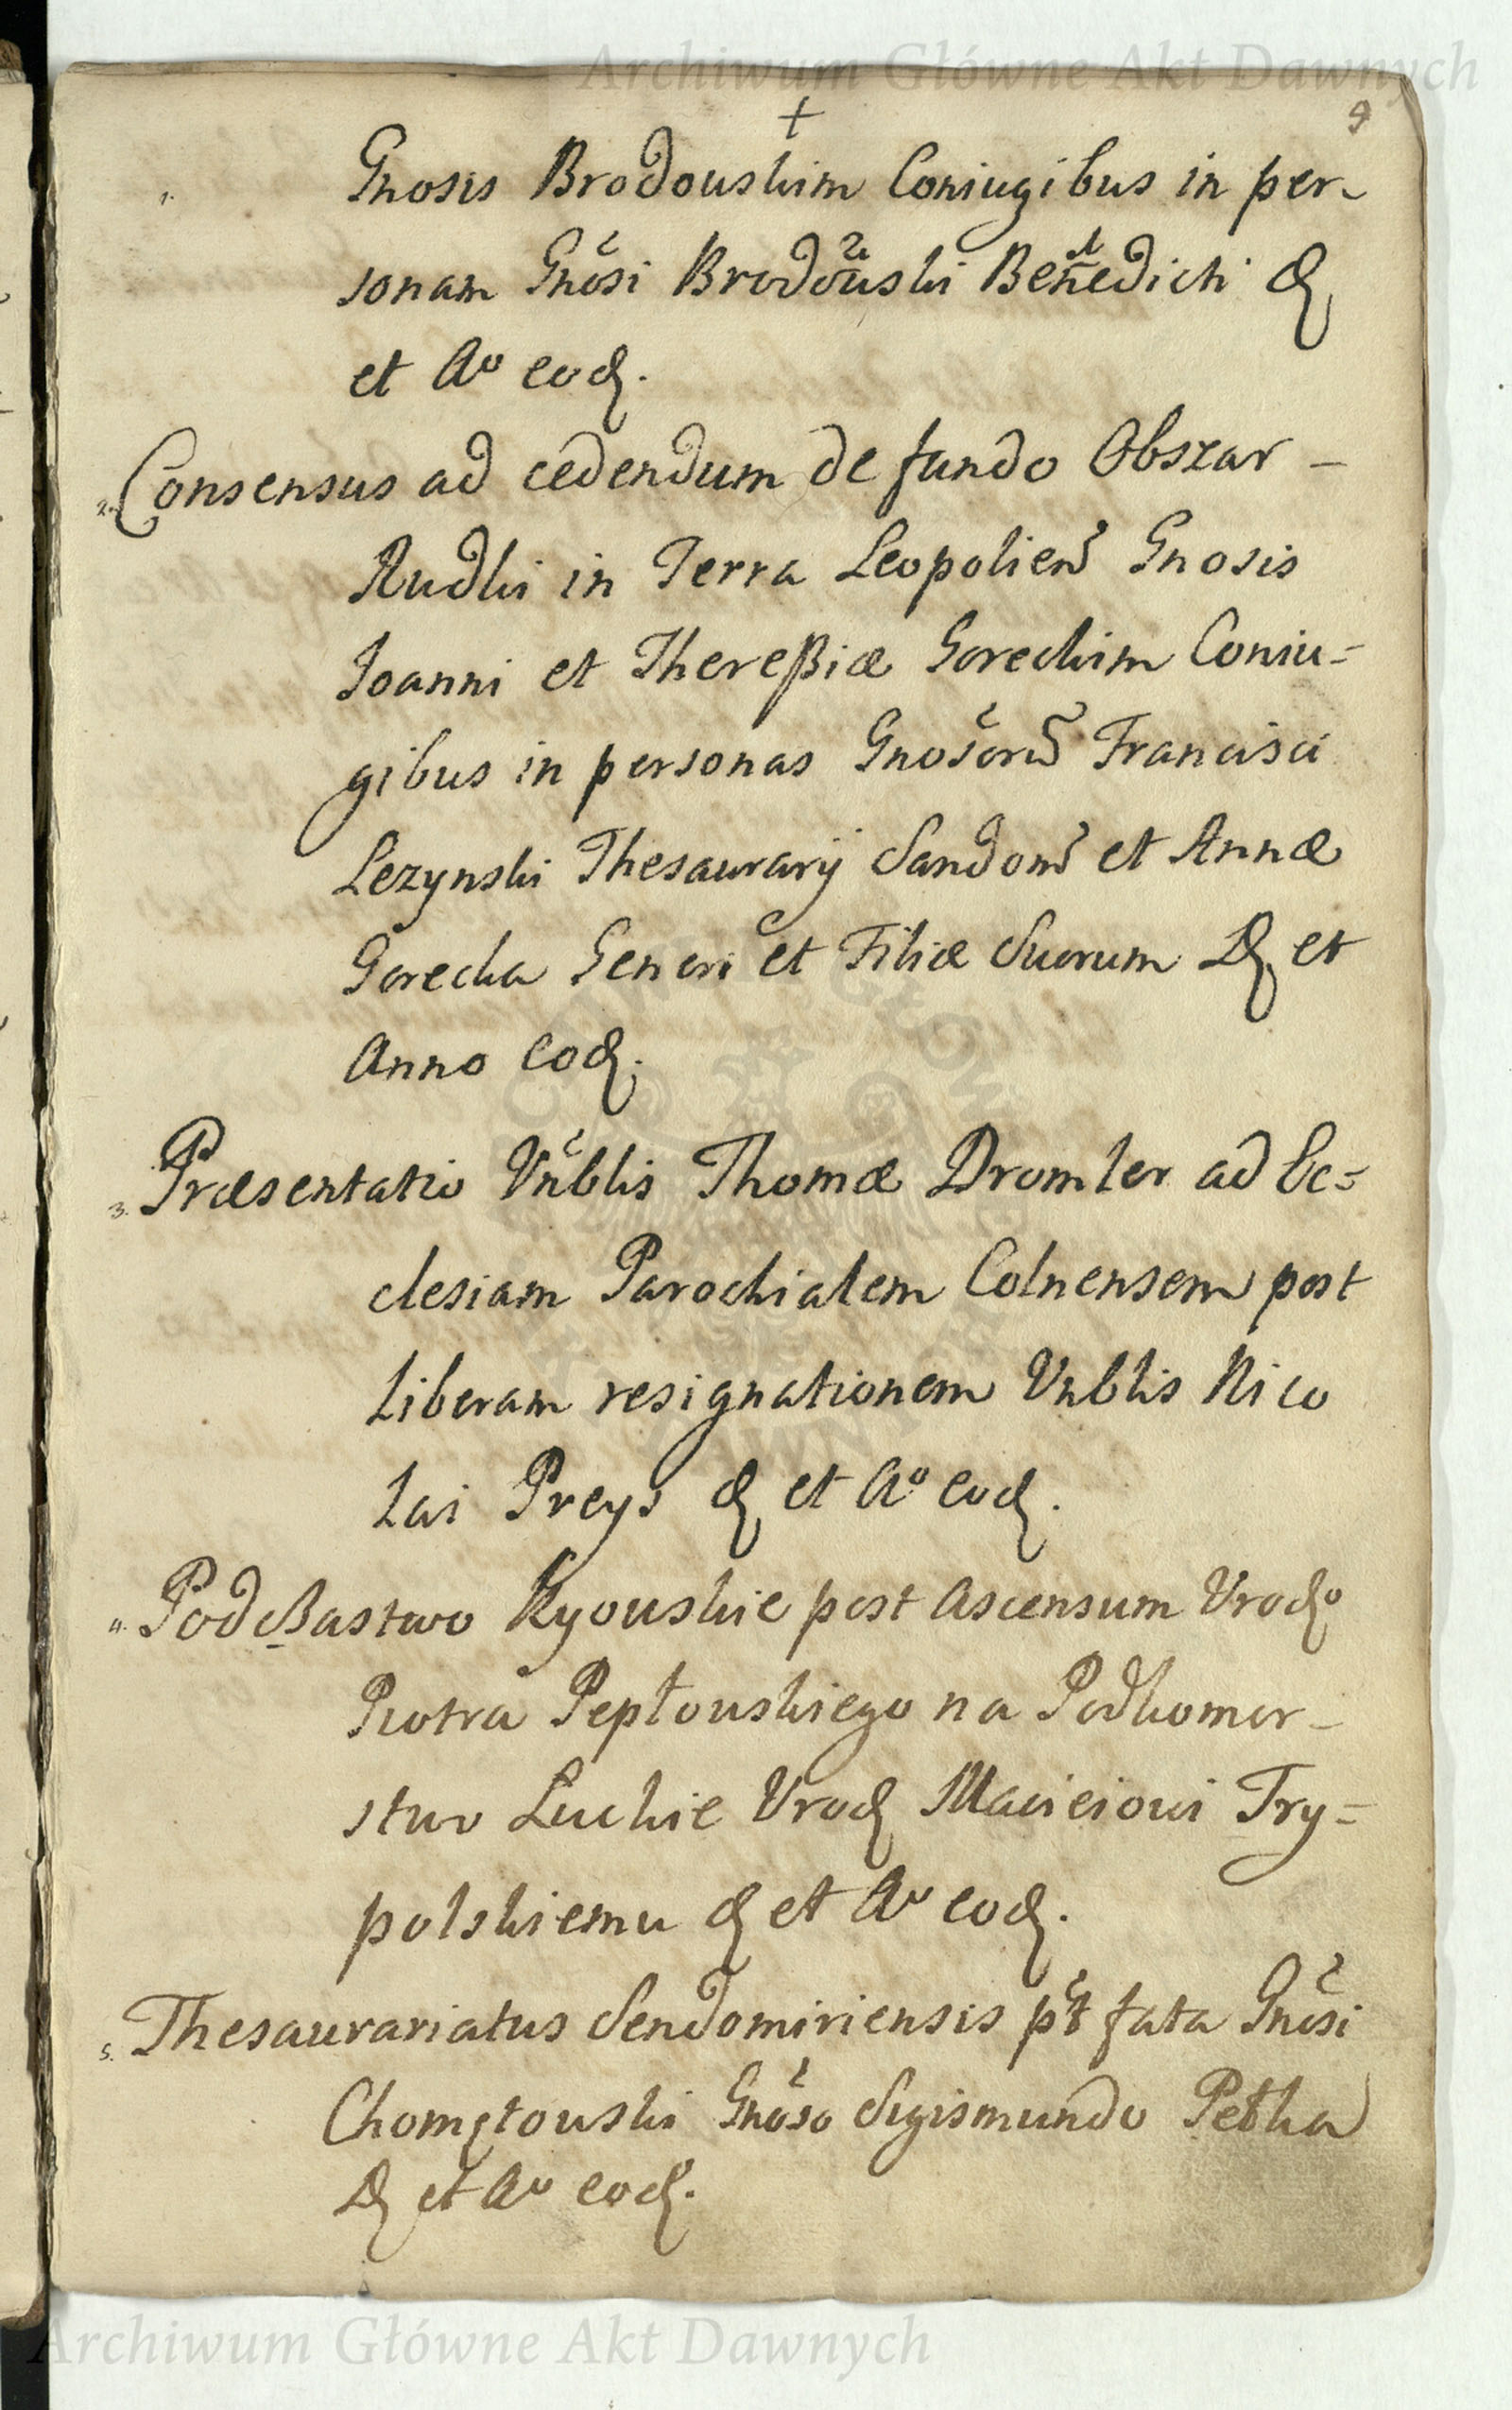 Archiwum Główne Akt Dawnych
+
9
1. Gnosis Brodouskim Coniugibus in per-
sonam Gnosi Brodouski Benedicti D
et Ao eod.
2. Consensus ad cedendum de fundo Obszar -
Rudki in Terra Leopolien Gnosis
Joanni et Thereßiæ Goreckim Coniu=
gibus in personas Gnosoru Francisci
Lezynski Thesaurarij Sandom et Annæ
Gorecka Generi et Filiæ Suorum D et
Anno eod.
3. Præsentatio Vnblis Thomæ Dromler ad Ec=
clesiam Parochialem Colnensem post
liberam resignationem Vnblis Nico
lai Preys D et Ao eod.
4. Podcßastwo Kyouskie post ascensum Vrodo
Piotra Pepłouskiego na Podkomor-
stwo Luckie Vrod Macieioui Try=
polskiemu D et Ao eod.
5. Thesaurariatus Sendomiriensis pt fata Gnosi
Chomętouski Gnoso Sigismundo Petka
D et Ao eod.
Archiwum Główne Akt Dawnych